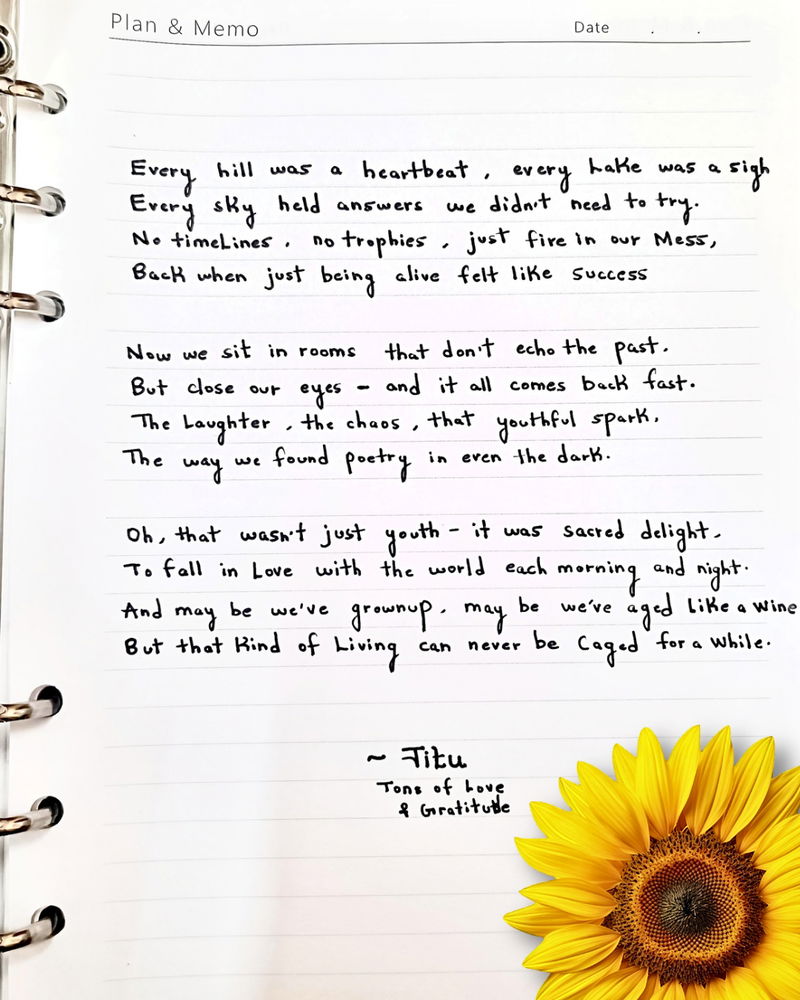 Plan & Memo
Date . .
Every hill was a heartbeat, every Lake was a sigh
Every sky held answers we didn't need to try.
No timeLines, no trophies, just fire in our Mess,
Back when just being alive felt like success
Now we sit in rooms that don't echo the past.
But close our eyes - and it all comes back fast.
The Laughter, the chaos, that youthful spark,
The way we found poetry in even the dark.
Oh, that wasn't just youth - it was sacred delight.
To fall in Love with the world each morning and night.
And may be we've grownup, may be we've aged Like a wine
But that Kind of Living can never be Caged for a while.
~ Titu
Tons of Love
& Gratitude